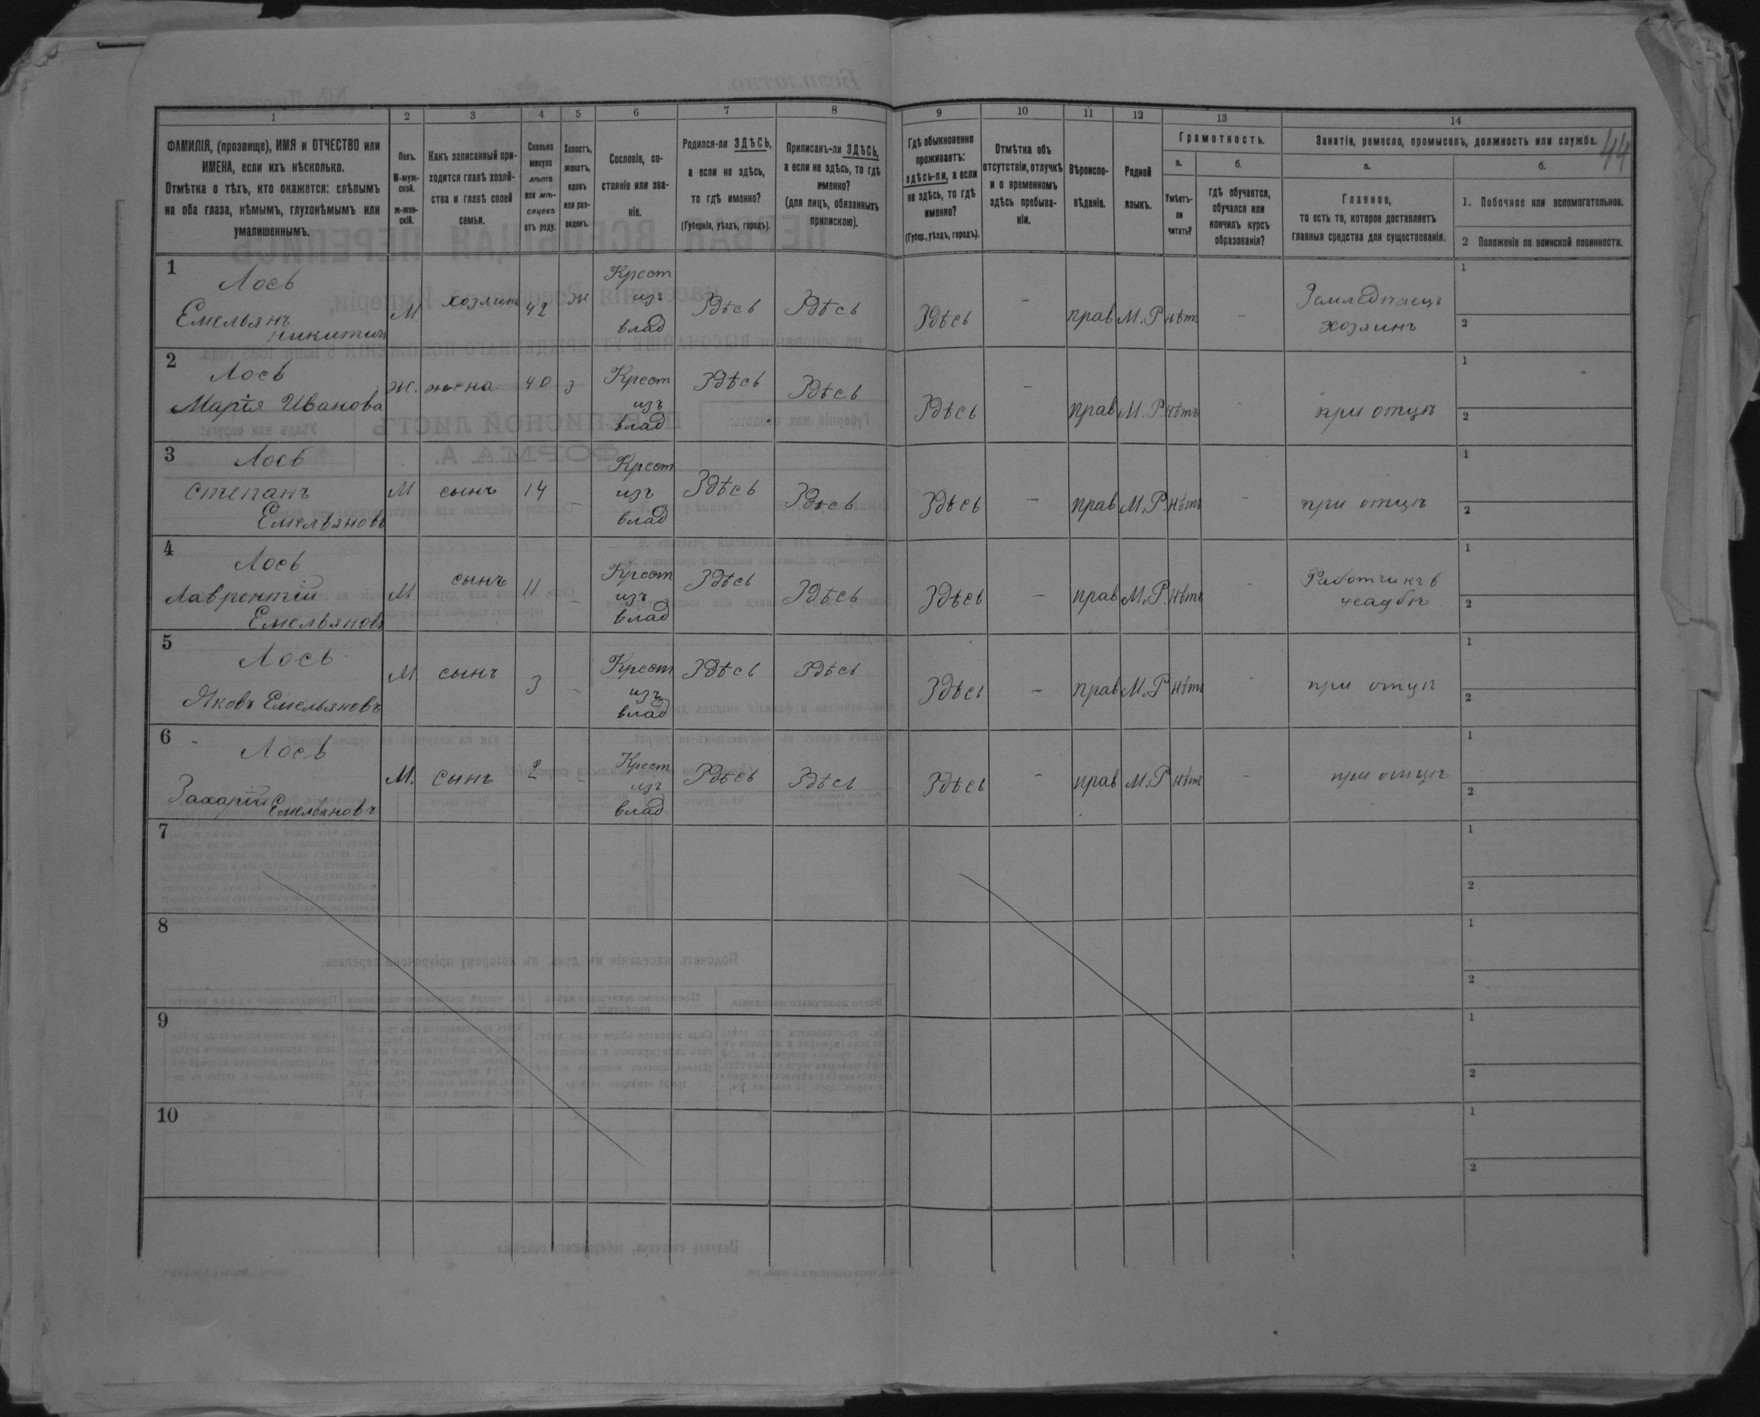 44
1 2 3 4 5 6 7 8 9 10 11 12 13 14
ФАМИЛІЯ, (прозвище), ИМЯ и ОТЧЕСТВО или
ИМЕНА, если ихъ нѣсколько.
Отмѣтка о тѣхъ, кто окажется: слѣпымъ
на оба глаза, нѣмымъ, глухонѣмымъ или
умалишеннымъ.
Полъ.
М-муж-
ской.
Ж-жен-
скій.
Какъ записанный при-
ходится главѣ хозяй-
ства и главѣ своей
семьи.
Сколько
минуло
лѣтъ
или мѣ-
сяцевъ
отъ роду.
Холостъ,
женатъ,
вдовъ
или раз-
веденъ.
Сословіе, со-
стояніе или зва-
ніе.
Родился-ли ЗДѢСЬ,
а если не здѣсь,
то гдѣ именно?
(Губернія, уѣздъ, городъ).
Приписанъ-ли ЗДѢСЬ,
а если не здѣсь, то гдѣ
именно?
(для лицъ, обязанныхъ
припискою).
Гдѣ обыкновенно
проживаетъ:
здѣсь-ли, а если
не здѣсь, то гдѣ
именно?
(Губер., уѣздъ, городъ).
Отмѣтка объ
отсутствіи, отлучкѣ
и о временномъ
здѣсь пребыва-
ніи.
Вѣроиспо-
вѣданіе.
Родной
языкъ.
Грамотность.
а.
Умѣетъ-
ли
читать?
б.
гдѣ обучается,
обучался или
кончилъ курсъ
образованія?
Занятіе, ремесло, промыселъ, должность или служба.
а.
Главное,
то есть то, которое доставляетъ
главныя средства для существованія.
б.
1. Побочное или вспомогательное.
2 Положеніе по воинской повинности.
1
Лось
Емельянъ
Никитич
М хозяинъ 42 ж
Крест
изъ
влад
Здѣсь Здѣсь Здѣсь - прав М.Р нѣтъ -
Земледѣлецъ
хозяинъ
1
2
2
Лось
Марія Иванова
ж. жена 40 з
Крест
изъ
влад
Здѣсь Здѣсь Здѣсь - прав М.Р нѣтъ -
при отцѣ
1
2
3
Лось
Степанъ
Емельяновъ
М сынъ 14 -
Крест
изъ
влад
Здѣсь Здѣсь Здѣсь - прав М.Р. нѣтъ -
при отцѣ
1
2
4
Лось
Лаврентій
Емельяновъ
М сынъ 11 -
Крест
изъ
влад
Здѣсь Здѣсь Здѣсь - прав М.Р. нѣтъ -
Работникъ в
усадбѣ
1
2
5
Лось
Яковъ Емельяновъ
М сынъ 3 -
Крест
изъ
влад
Здѣсь Здѣсь Здѣсь - прав М.Р нѣтъ -
при отцѣ
1
2
6
Лось
Захарій Емельяновъ
М. сынъ 2 -
Крест
изъ
влад
Здѣсь Здѣсь Здѣсь - прав М.Р нѣтъ -
при отцѣ
1
2
7
1
2
8
1
2
9
1
2
10
1
2